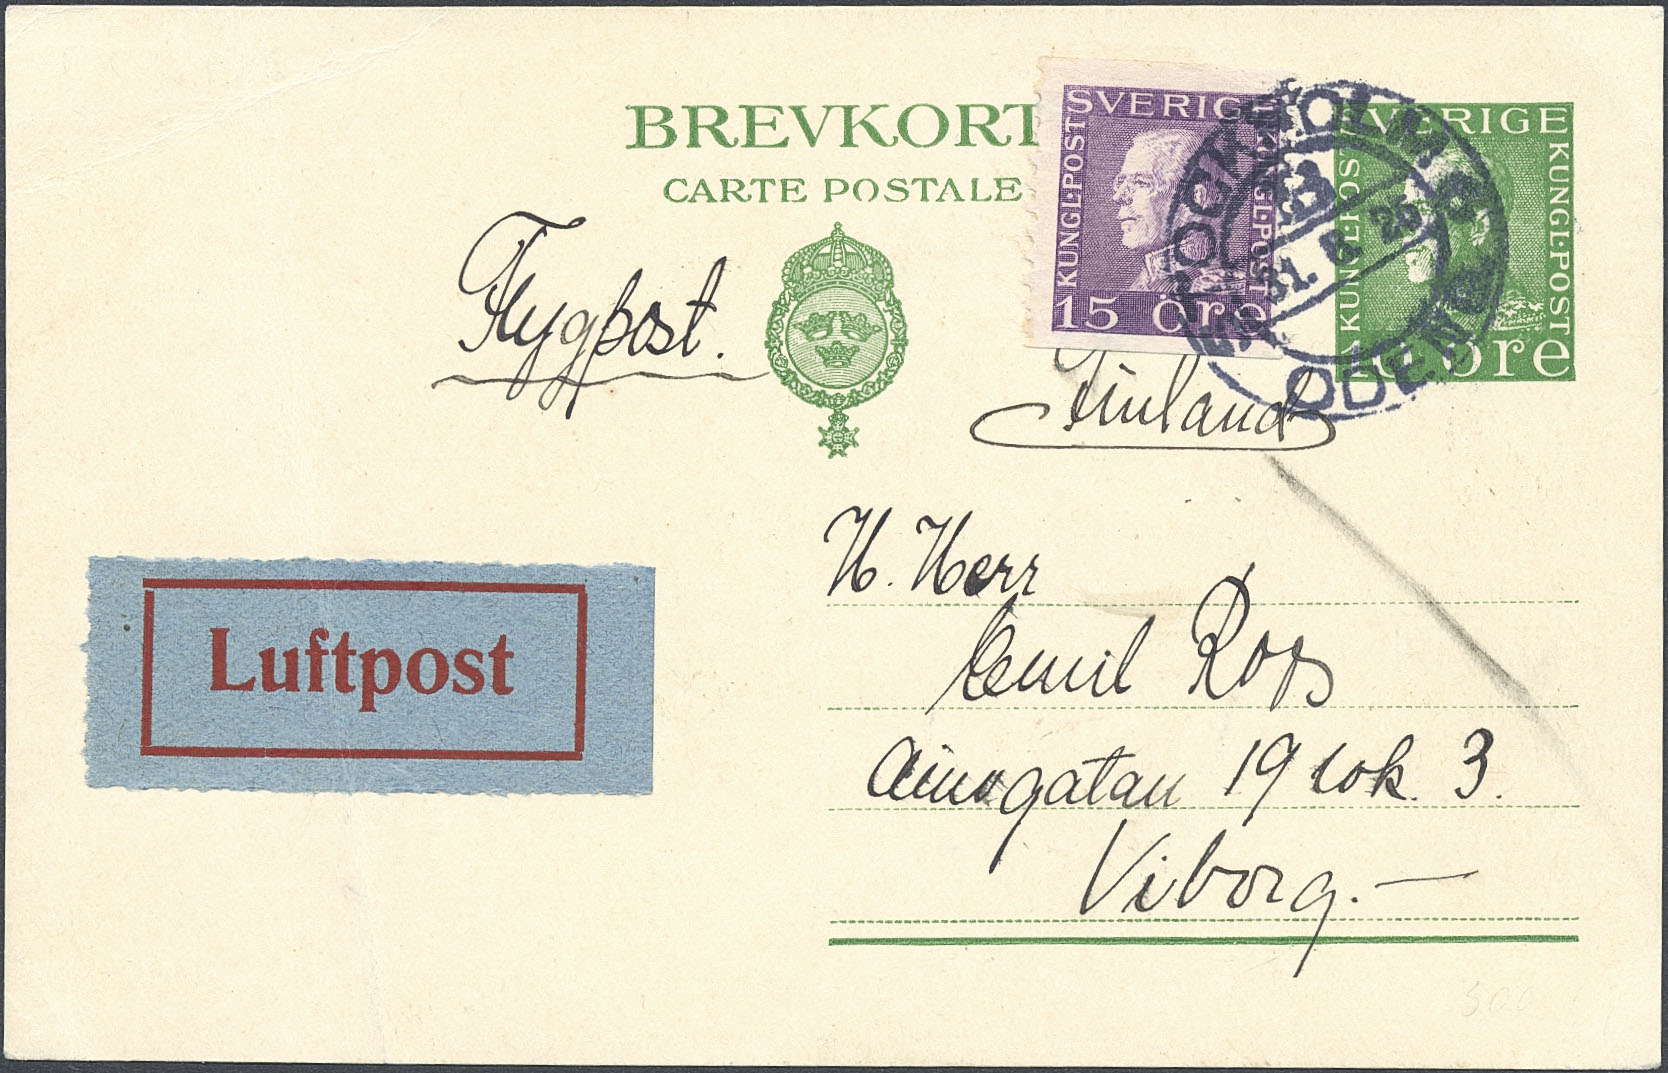 BREVKORT
CARTE POSTALE
SVERIGE
KUNGL·POST
KUNGL·POST
15 ÖRE
SVERIGE
KUNGL·POST
KUNGL·POST
10 ÖRE
STOCKHOLM
31. 8. 28
ODENG
Flygpost.
Finland
H. Herr
Emil Roos
Ainogatan 19 lok. 3.
Viborg.—
Luftpost
500